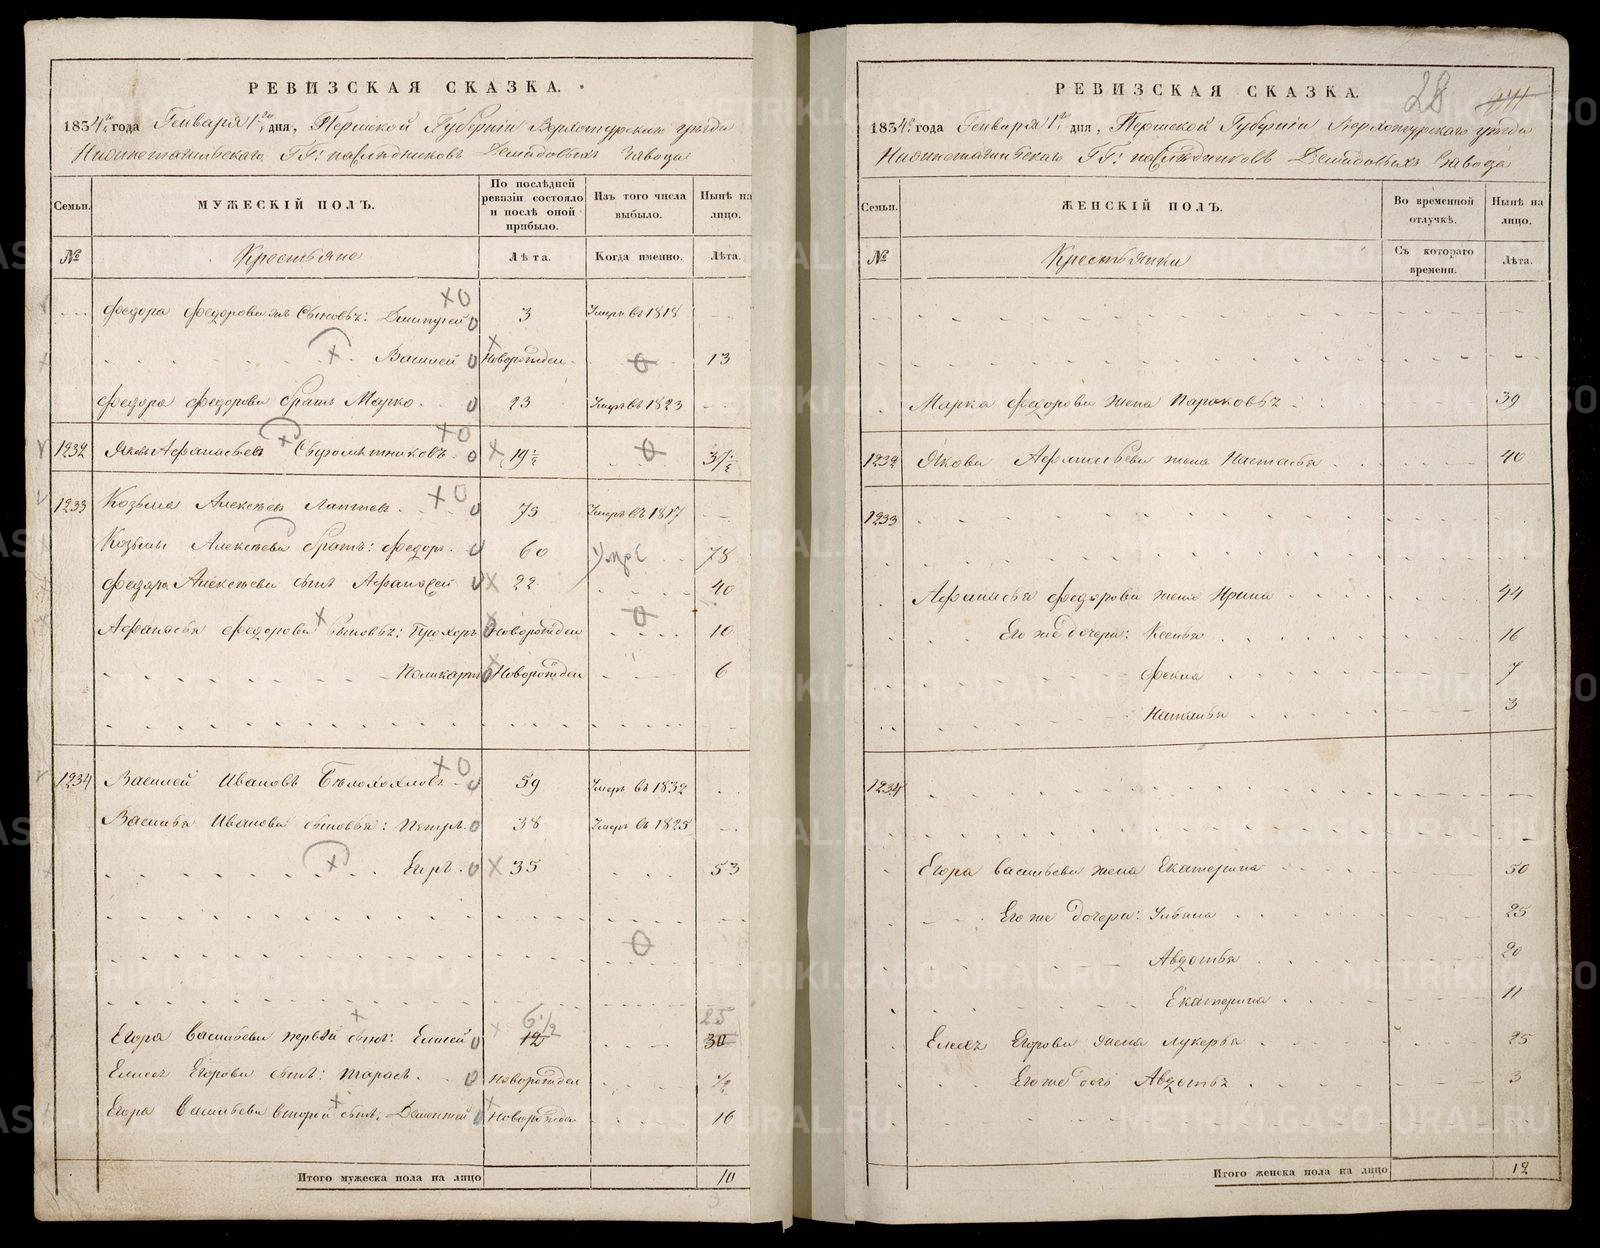 РЕВИЗСКАЯ СКАЗКА.
1834 года Генваря 1 дня, Пермской Губернiи Верхотурскаго уѣзда
Нижнетагильскаго ГГ: наслѣдниковъ Демидовыхъ завода
Семьи.
МУЖЕСКIЙ ПОЛЪ.
По послѣдней ревизiи состояло и послѣ оной прибыло.
Изъ того числа выбыло.
Нынѣ на лицо.
№
Крестьяне
Лѣта.
Когда именно.
Лѣта.
Федора Федорова сыновья: Дмитрей 3 Умеръ въ 1818
Василей Новорожден 13
Федора Федорова братъ Марко 23 Умеръ въ 1823
1232 Яковъ Афанасьевъ Сыромятниковъ 19 1/2 37 1/2
1233 Козьма Алексѣевъ Лаптевъ 73 Умеръ въ 1817
Козьмы Алексѣева братъ: Федоръ 60 умре 78
Федора Алексѣева сынъ Афанасей 22 40
Афанасья Федорова сыновья: Прохоръ Новорожден 10
Поликарпъ Новорожден 6
1234 Василей Ивановъ Бѣлохохловъ 59 Умеръ въ 1832
Василья Иванова сыновья: Петръ 38 Умеръ въ 1825
Егоръ 35 53
6 1/2 25
Егора Васильева первой сынъ: Елисей 12 30
Елисея Егорова сынъ: Тарасъ Новорожден 1/2
Егора Васильева второй сынъ: Дементей Новорожден 16
Итого мужеска пола на лицо 10
РЕВИЗСКАЯ СКАЗКА.
28
1834 года Генваря 1 дня, Пермской Губернiи Верхотурскаго уѣзда
Нижнетагильскаго ГГ: наслѣдниковъ Демидовыхъ завода
Семьи.
ЖЕНСКIЙ ПОЛЪ.
Во временной отлучкѣ.
Нынѣ на лицо.
№
Крестьянки
Съ котораго времени.
Лѣта.
Марка Федорова жена Парасковья 39
1232 Якова Афанасьева жена Настасья 40
1233
Афанасья Федорова жена Ирина 44
Его же дочери: Ксенья 16
Фекла 7
Наталья 3
1234
Егора Васильева жена Екатерина 50
Его же дочери: Ульяна 25
Авдотья 20
Екатерина 11
Елисея Егорова жена Лукерья 25
Его же дочь Авдотья 3
Итого женска пола на лицо 12
METRIKI.GASO-URAL.RU